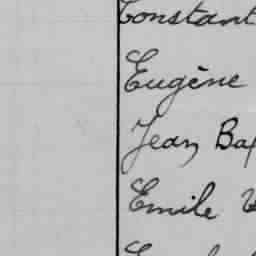 Constant
Eugène
Jean Bap
Emile